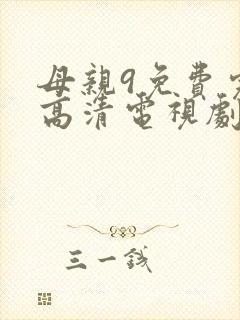 母親9免費
高清電視劇
三一钱